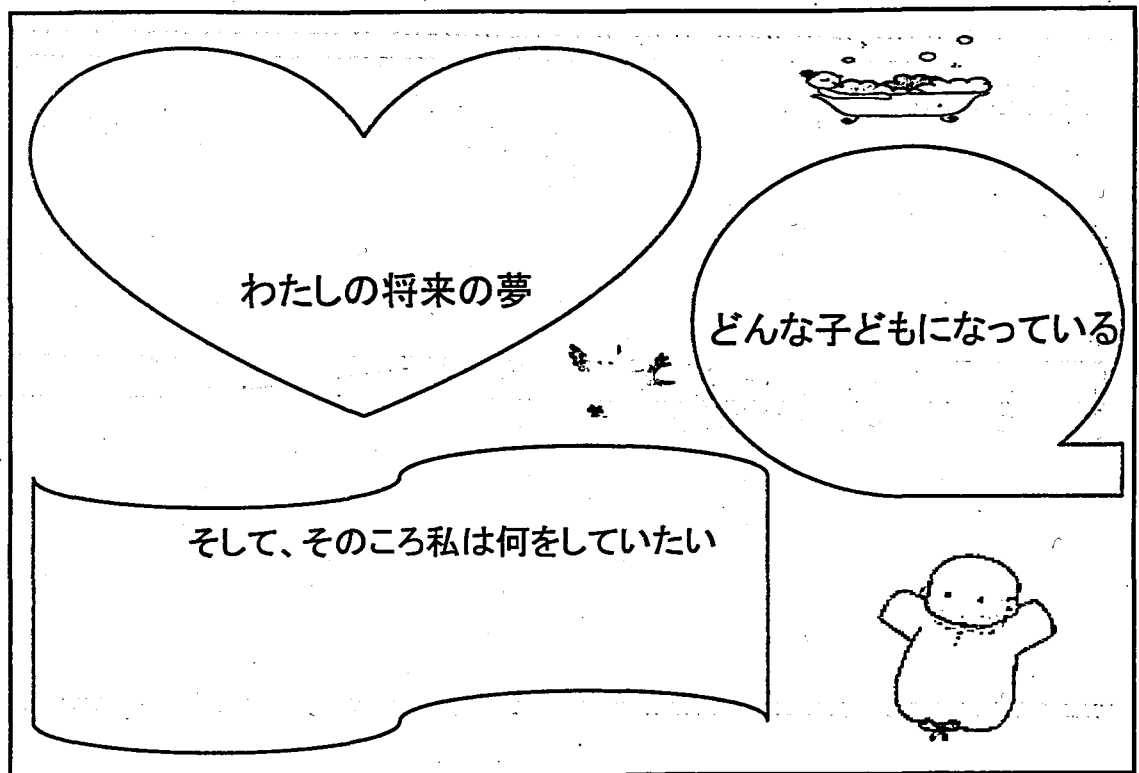 わたしの将来の夢
どんな子どもになっている
そして、そのころ私は何をしていたい